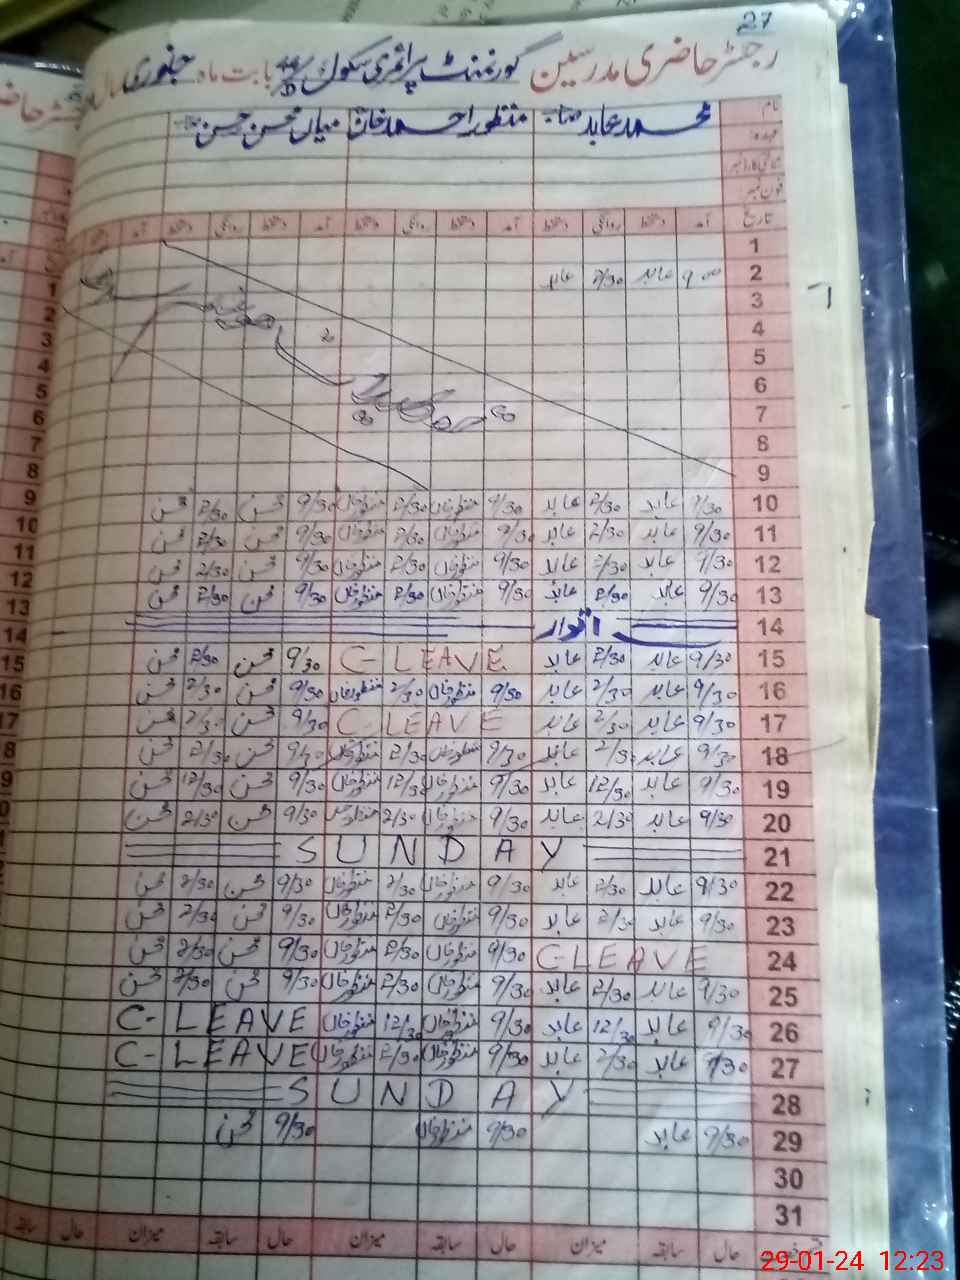 27
رجسٹر حاضری مدرسین گورنمنٹ پرائمری سکول بابت ماہ جنوری
نام محمد عابد منظور احمد خان میاں محسن حسن
عہدہ
شناختی کارڈ نمبر
فون نمبر
تاریخ آمد دستخط روانگی دستخط آمد دستخط روانگی دستخط آمد دستخط روانگی دستخط آمد
1
2 9 عابد 2/30 عابد
3
4
5
6
7
8
9
10 9/30 عابد 2/30 عابد 9/30 منظور خان 2/30 منظور خان 9/30 محسن 2/30 محسن
11 9/30 عابد 2/30 عابد 9/30 منظور خان 2/30 منظور خان 9/30 محسن 2/30 محسن
12 9/30 عابد 2/30 عابد 9/30 منظور خان 2/30 منظور خان 9/30 محسن 2/30 محسن
13 9/30 عابد 2/30 عابد 9/30 منظور خان 2/30 منظور خان 9/30 محسن 2/30 محسن
14 اتوار
15 9/30 عابد 2/30 عابد C-LEAVE 9/30 محسن 2/30 محسن
16 9/30 عابد 2/30 عابد 9/30 منظور خان 2/30 منظور خان 9/30 محسن 2/30 محسن
17 9/30 عابد 2/30 عابد C-LEAVE 9/30 محسن 2/30 محسن
18 9/30 عابد 2/30 عابد 9/30 منظور خان 2/30 منظور خان 9/30 محسن 2/30 محسن
19 9/30 عابد 12/30 عابد 9/30 منظور خان 12/30 منظور خان 9/30 محسن 12/30 محسن
20 9/30 عابد 2/30 عابد 9/30 منظور خان 2/30 منظور خان 9/30 محسن 2/30 محسن
21 SUNDAY
22 9/30 عابد 2/30 عابد 9/30 منظور خان 2/30 منظور خان 9/30 محسن 2/30 محسن
23 9/30 عابد 2/30 عابد 9/30 منظور خان 2/30 منظور خان 9/30 محسن 2/30 محسن
24 C-LEAVE 9/30 منظور خان 2/30 منظور خان 9/30 محسن 2/30 محسن
25 9/30 عابد 2/30 عابد 9/30 منظور خان 2/30 منظور خان 9/30 محسن 2/30 محسن
26 9/30 عابد 12/30 عابد 9/30 منظور خان 12/30 منظور خان C-LEAVE
27 9/30 عابد 2/30 عابد 9/30 منظور خان 2/30 منظور خان C-LEAVE
28 SUNDAY
29 9/30 عابد 9/30 منظور خان 9/30 محسن
30
31
حال سابقہ میزان حال سابقہ میزان حال سابقہ میزان حال سابقہ
29-01-24 12:23